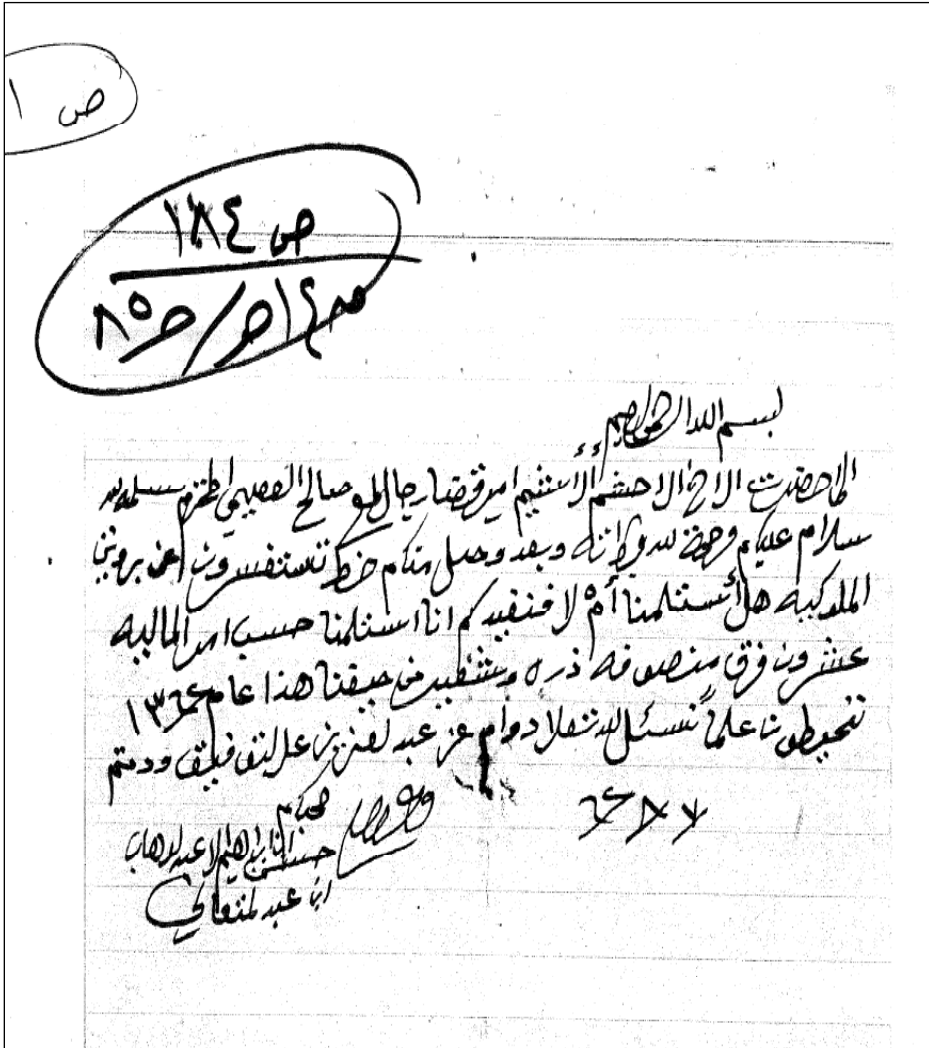 ص ١
ص ١٨٤
بسم الله الرحمن الرحيم
الى حضرت الاخ الاحشم الأشيم امير قضا رجال المع صالح العصيمي المحترم سلمه الله
سلام عليكم ورحمة الله وبركاته وبعد وصل منكم خط تستفسرون عن بروتي
الملوكيه هل أستلمنا أم لا فنفيدكم انا استلمنا حسب امر الماليه
عشرون فرق منصوفه ذره وشعير من حبقنا هذا عام ١٣٦٤
تحيطون علماً نسئل الله تعالا دوام عز عبدالعزيز على التوفيق ودمتم
محبكم
ابراهيم عبدالوهاب
ابن عبدالمتعالي